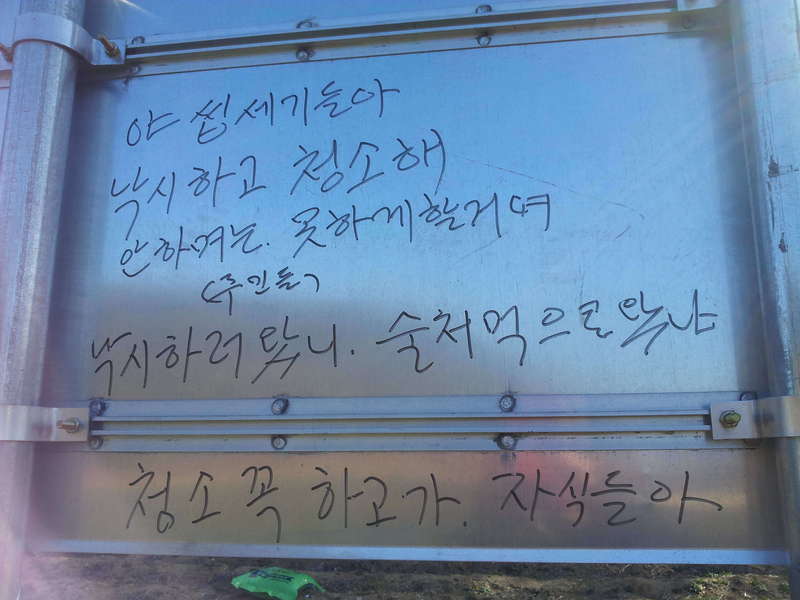 야 씹세기들아
낙시하고 청소해
안하며는. 못하게할거여
(주민들)
낙시하러 왔니. 술처먹으로왔냐
청소 꼭 하고가. 자식들아